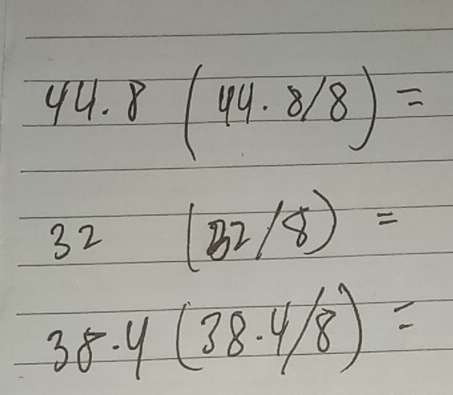 44.8 (44.8/8) =
32 (32/8) =
38.4 (38.4/8) =